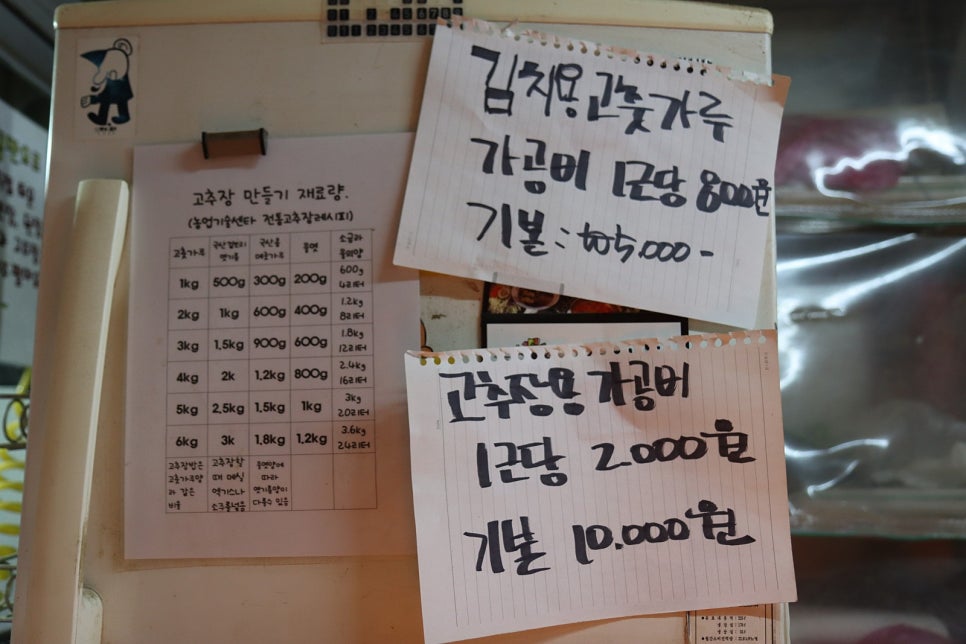 고추장 만들기 재료량.
(농업기술센타 전통고추장레시피)
고춧가루 국산겉보리 엿기름 국산콩 메춧가루 물엿 소금과 물의양
1kg 500g 300g 200g 600g 4리터
2kg 1kg 600g 400g 1.2kg 8리터
3kg 1.5kg 900g 600g 1.8kg 12리터
4kg 2k 1.2kg 800g 2.4kg 16리터
5kg 2.5kg 1.5kg 1kg 3kg 20리터
6kg 3k 1.8kg 1.2kg 3.6kg 24리터
고추장밥은 고춧가루양과 같은 비율
고추장할 때 매실 엑기스나 소주를넣음
물엿양에 따라 엿기름양이 다를수 있음
김치용고춧가루
가공비 1근당 800원
기본: ₩5,000-
고추장용 가공비
1근당 2.000원
기본 10.000원